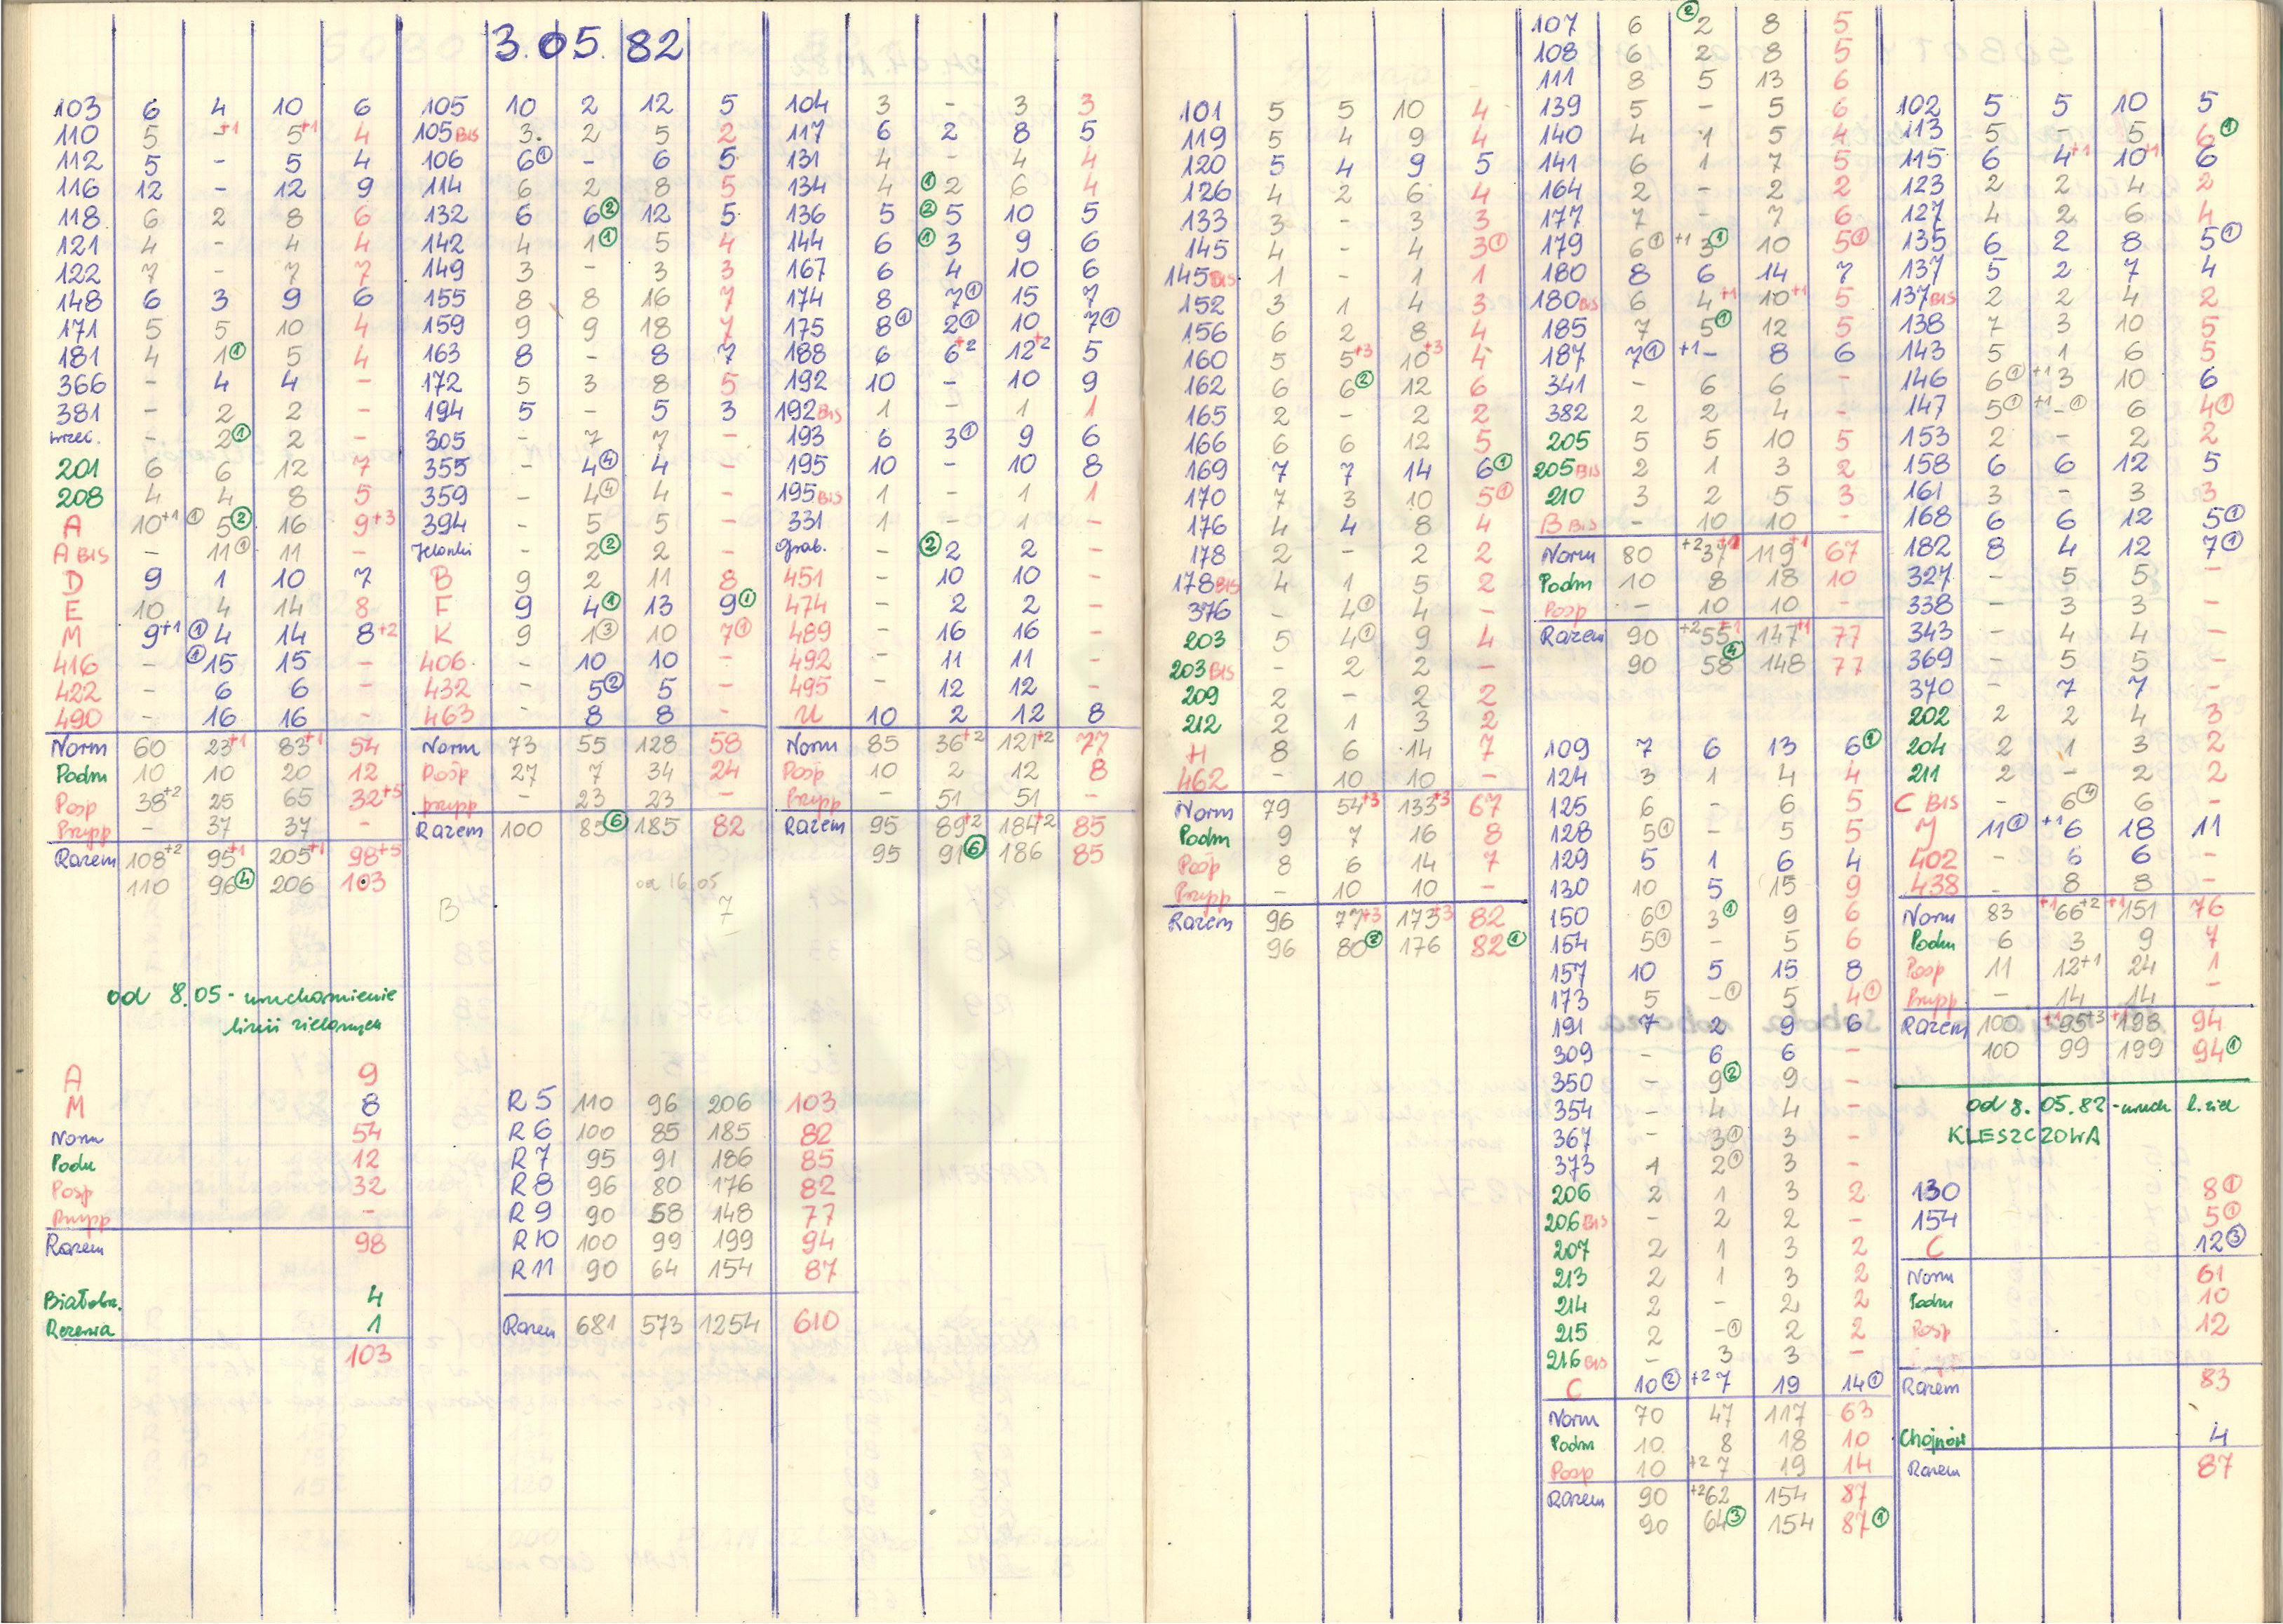 3.05.82
103 6 4 10 6
110 5 -+1 5+1 4
112 5 - 5 4
116 12 - 12 9
118 6 2 8 6
121 4 - 4 4
122 7 - 7 7
148 6 3 9 6
171 5 5 10 4
181 4 1① 5 4
366 - 4 4 -
381 - 2 2 -
wrzec. - 2① 2 -
201 6 6 12 7
208 4 4 8 5
A 10+1 ① 5② 16 9+3
A BIS - 11① 11 -
D 9 1 10 7
E 10 4 14 8
M 9+1 ①4 14 8+2
416 - ①15 15 -
422 - 6 6 -
490 - 16 16 -
Norm 60 23+1 83+1 54
Podm 10 10 20 12
Posp 38+2 25 65 32+5
Przysp - 37 37 -
Razem 108+2 95+1 205+1 98+5
110 96④ 206 103
od 8.05 - uruchomienie
linii zielonych
A 9
M 8
Norm 54
Podm 12
Posp 32
Przysp -
Razem 98
Białobrz. 4
Rezerwa 1
103
105 10 2 12 5
105 BIS 3. 2 5 2
106 6① - 6 5
114 6 2 8 5
132 6 6② 12 5
142 4 1① 5 4
149 3 - 3 3
155 8 8 16 7
159 9 9 18 7
163 8 - 8 7
172 5 3 8 5
194 5 - 5 3
305 - 7 7 -
355 - 4④ 4 -
359 - 4④ 4 -
394 - 5 5 -
Jelonki - 2② 2 -
B 9 2 11 8
F 9 4① 13 9①
K 9 1③ 10 7①
406 - 10 10 -
432 - 5② 5 -
463 - 8 8 -
Norm 73 55 128 58
Posp 27 7 34 24
przysp - 23 23 -
Razem 100 85⑥ 185 82
od 16.05
B 7
R5 110 96 206 103
R6 100 85 185 82
R7 95 91 186 85
R8 96 80 176 82
R9 90 58 148 77
R10 100 99 199 94
R11 90 64 154 87
Razem 681 573 1254 610
104 3 - 3 3
117 6 2 8 5
131 4 - 4 4
134 4 ①2 6 4
136 5 ②5 10 5
144 6 ①3 9 6
167 6 4 10 6
174 8 7① 15 7
175 8① 2① 10 7①
188 6 6+2 12+2 5
192 10 - 10 9
192 BIS 1 - 1 1
193 6 3① 9 6
195 10 - 10 8
195 BIS 1 - 1 1
331 1 - 1 -
Grab. - ②2 2 -
451 - 10 10 -
474 - 2 2 -
489 - 16 16 -
492 - 11 11 -
495 - 12 12 -
U 10 2 12 8
Norm 85 36+2 121+2 77
Posp 10 2 12 8
Przysp - 51 51 -
Razem 95 89+2 184+2 85
95 91⑥ 186 85
101 5 5 10 4
119 5 4 9 4
120 5 4 9 5
126 4 2 6 4
133 3 - 3 3
145 4 - 4 3①
145 BIS 1 - 1 1
152 3 1 4 3
156 6 2 8 4
160 5 5+3 10+3 4
162 6 6② 12 6
165 2 - 2 2
166 6 6 12 5
169 7 7 14 6①
170 7 3 10 5①
176 4 4 8 4
178 2 - 2 2
178 BIS 4 1 5 2
376 - 4① 4 -
203 5 4① 9 4
203 BIS - 2 2 -
209 2 - 2 2
212 2 1 3 2
H 8 6 14 7
462 - 10 10 -
Norm 79 54+3 133+3 67
Podm 9 7 16 8
Posp 8 6 14 7
Przysp - 10 10 -
Razem 96 77+3 173+3 82
96 80② 176 82①
107 6 ②2 8 5
108 6 2 8 5
111 8 5 13 6
139 5 - 5 6
140 4 1 5 4
141 6 1 7 5
164 2 - 2 2
177 7 - 7 6
179 6① +1 3① 10 5①
180 8 6 14 7
180 BIS 6 4+1 10+1 5
185 7 5① 12 5
187 7① +1- 8 6
341 - 6 6 -
382 2 2 4 -
205 5 5 10 5
205 BIS 2 1 3 2
210 3 2 5 3
B BIS - 10 10 -
Norm 80 +237+1 119+1 67
Podm 10 8 18 10
Posp - 10 10 -
Razem 90 +255+1 147+1 77
90 58④ 148 77
109 7 6 13 6①
124 3 1 4 4
125 6 - 6 5
128 5① - 5 5
129 5 1 6 4
130 10 5 15 9
150 6① 3① 9 6
154 5① - 5 6
157 10 5 15 8
173 5 -① 5 4①
191 7 2 9 6
309 - 6 6 -
350 - 9② 9 -
354 - 4 4 -
367 - 3① 3 -
373 1 2① 3 -
206 2 1 3 2
206 BIS - 2 2 -
207 2 1 3 2
213 2 1 3 2
214 2 - 2 2
215 2 -① 2 2
216 BIS - 3 3 -
C 10② +27 19 14①
Norm 70 47 117 63
Podm 10 8 18 10
Posp 10 +27 19 14
Razem 90 +262 154 87
90 64③ 154 87①
102 5 5 10 5
113 5 - 5 6①
115 6 4+1 10+1 6
123 2 2 4 2
127 4 2 6 4
135 6 2 8 5①
137 5 2 7 4
137 BIS 2 2 4 2
138 7 3 10 5
143 5 1 6 5
146 6① +13 10 6
147 5① +1-① 6 4①
153 2 - 2 2
158 6 6 12 5
161 3 - 3 3
168 6 6 12 5①
182 8 4 12 7①
327 - 5 5 -
338 - 3 3 -
343 - 4 4 -
369 - 5 5 -
370 - 7 7 -
202 2 2 4 3
204 2 1 3 2
211 2 - 2 2
C BIS - 6④ 6 -
J 11① +16 18 11
402 - 6 6 -
438 - 8 8 -
Norm 83 +166+2 +1151 76
Podm 6 3 9 7
Posp 11 12+1 24 1
Przysp - 14 14 -
Razem 100 +195+3 +1198 94
100 99 199 94①
od 8.05.82 - uruch l. ziel
KLESZCZOWA
130 8①
154 5①
C 12③
Norm 61
Podm 10
Posp 12
Razem 83
Chojnów 4
Razem 87